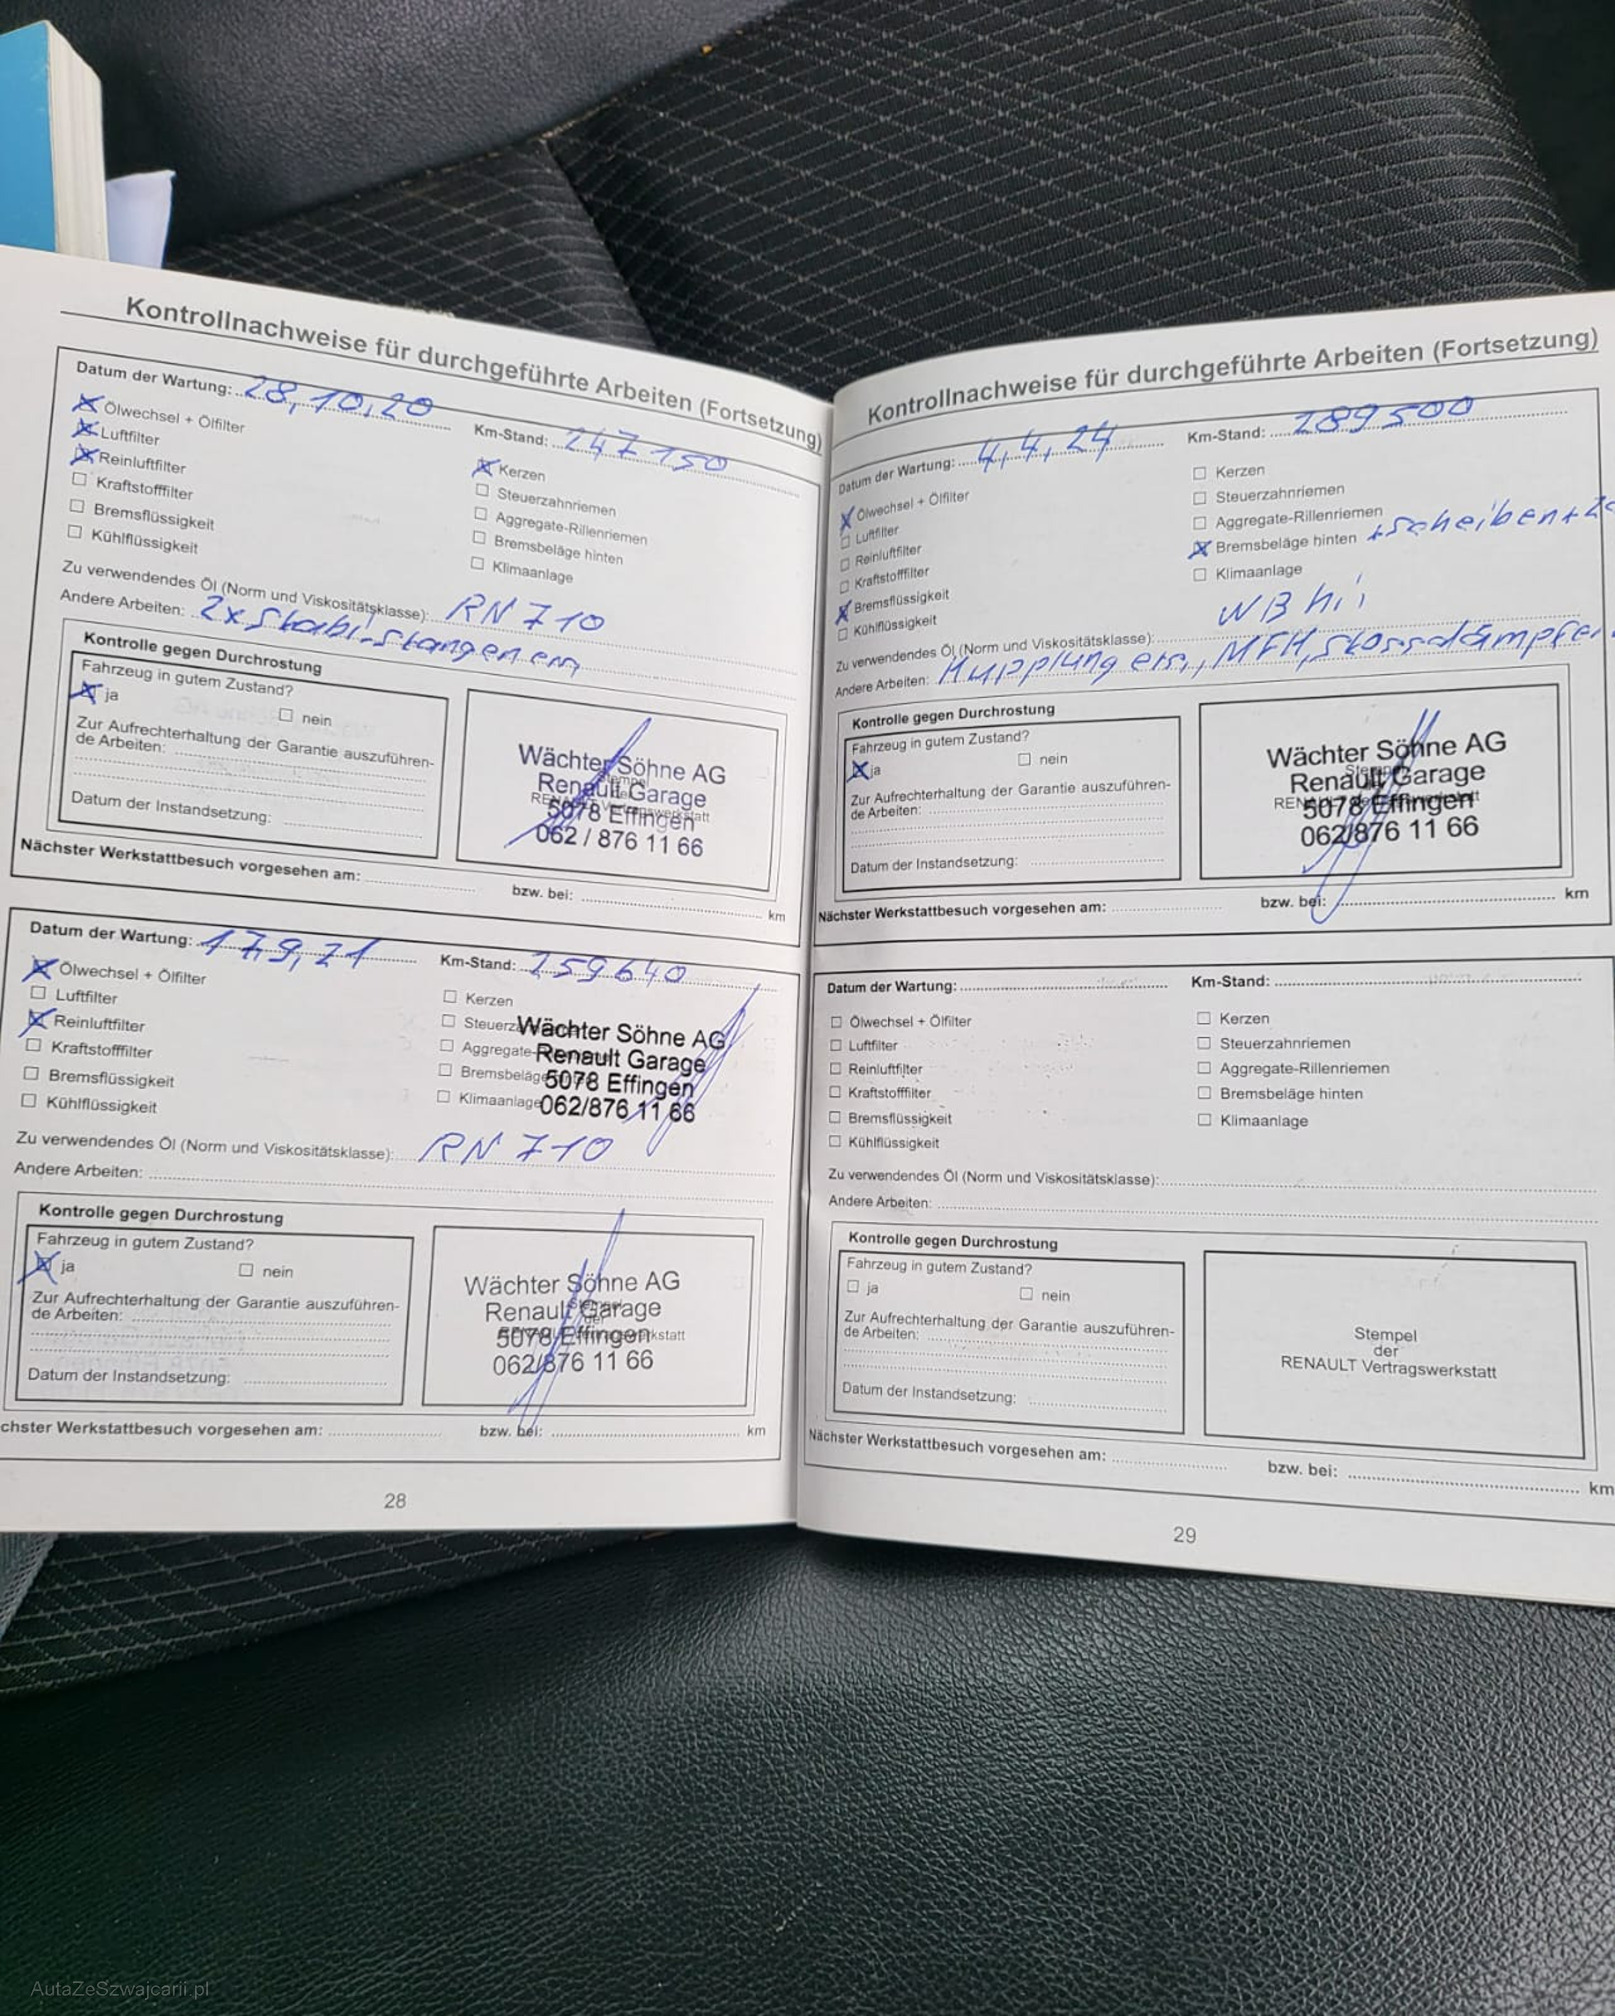 Kontrollnachweise für durchgeführte Arbeiten (Fortsetzung)
Datum der Wartung: 28,10,20
Km-Stand: 247150
Ölwechsel + Ölfilter
Luftfilter
Reinluftfilter
Kraftstofffilter
Bremsflüssigkeit
Kühlflüssigkeit
Kerzen
Steuerzahnriemen
Aggregate-Rillenriemen
Bremsbeläge hinten
Klimaanlage
Zu verwendendes Öl (Norm und Viskositätsklasse): RN 710
Andere Arbeiten: 2x Stabi-Stangen ern
Kontrolle gegen Durchrostung
Fahrzeug in gutem Zustand?
ja
nein
Zur Aufrechterhaltung der Garantie auszuführen-
de Arbeiten:
Datum der Instandsetzung:
Wächter Söhne AG
Renault Garage
5078 Effingen
062 / 876 11 66
Stempel
der
RENAULT Vertragswerkstatt
Nächster Werkstattbesuch vorgesehen am:
bzw. bei: km
Datum der Wartung: 17,9,21
Km-Stand: 259640
Ölwechsel + Ölfilter
Luftfilter
Reinluftfilter
Kraftstofffilter
Bremsflüssigkeit
Kühlflüssigkeit
Kerzen
Aggregate-
Klimaanlage
Wächter Söhne AG
Renault Garage
5078 Effingen
062/876 11 66
Zu verwendendes Öl (Norm und Viskositätsklasse): RN 710
Andere Arbeiten:
Kontrolle gegen Durchrostung
Fahrzeug in gutem Zustand?
ja
nein
Zur Aufrechterhaltung der Garantie auszuführen-
de Arbeiten:
Datum der Instandsetzung:
Wächter Söhne AG
Renault Garage
5078 Effingen
062/876 11 66
chster Werkstattbesuch vorgesehen am:
bzw. bei: km
28
Kontrollnachweise für durchgeführte Arbeiten (Fortsetzung)
Datum der Wartung: 4,4,24
Km-Stand: 289500
Ölwechsel + Ölfilter
Luftfilter
Reinluftfilter
Kraftstofffilter
Bremsflüssigkeit
Kühlflüssigkeit
Kerzen
Steuerzahnriemen
Aggregate-Rillenriemen
Bremsbeläge hinten +Scheiben+
Klimaanlage
WB hi
Zu verwendendes Öl (Norm und Viskositätsklasse):
Andere Arbeiten: Kupplung ern, MFH, Stossdämpfer
Kontrolle gegen Durchrostung
Fahrzeug in gutem Zustand?
ja
nein
Zur Aufrechterhaltung der Garantie auszuführen-
de Arbeiten:
Datum der Instandsetzung:
Wächter Söhne AG
Renault Garage
5078 Effingen
062/876 11 66
Nächster Werkstattbesuch vorgesehen am:
bzw. bei: km
Datum der Wartung:
Km-Stand:
Ölwechsel + Ölfilter
Luftfilter
Reinluftfilter
Kraftstofffilter
Bremsflüssigkeit
Kühlflüssigkeit
Kerzen
Steuerzahnriemen
Aggregate-Rillenriemen
Bremsbeläge hinten
Klimaanlage
Zu verwendendes Öl (Norm und Viskositätsklasse):
Andere Arbeiten:
Kontrolle gegen Durchrostung
Fahrzeug in gutem Zustand?
ja
nein
Zur Aufrechterhaltung der Garantie auszuführen-
de Arbeiten:
Datum der Instandsetzung:
Stempel
der
RENAULT Vertragswerkstatt
Nächster Werkstattbesuch vorgesehen am:
bzw. bei: km
29
AutaZeSzwajcarii.pl